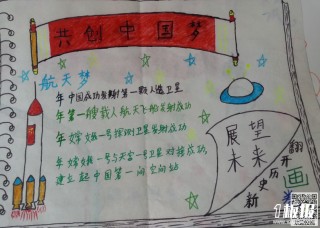 共创中国梦
航天梦
年中国成功发射第一颗人造卫星
年第一艘载人航天飞船发射成功
年嫦娥一号探测卫星发射成功
年嫦娥一号与天宫一号卫星对接成功,
建立起中国第一间空间站
展望
未来
翻开
历史
新
画
板报